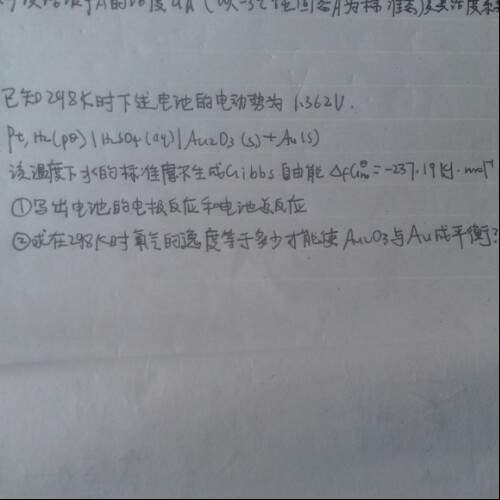 的活度aA(以
为标准态)及其活度系
已知298K时下述电池的电动势为 1.362V.
Pt, H₂(pθ) | H₂SO₄(aq) | Au₂O₃(s)+Au(s)
该温度下水的标准摩尔生成Gibbs 自由能 ΔfGmθ=-237.19kJ·mol-1
①写出电池的电极反应和电池总反应
②求在298K时氧气的逸度等于多少才能使 Au₂O₃与Au成平衡?